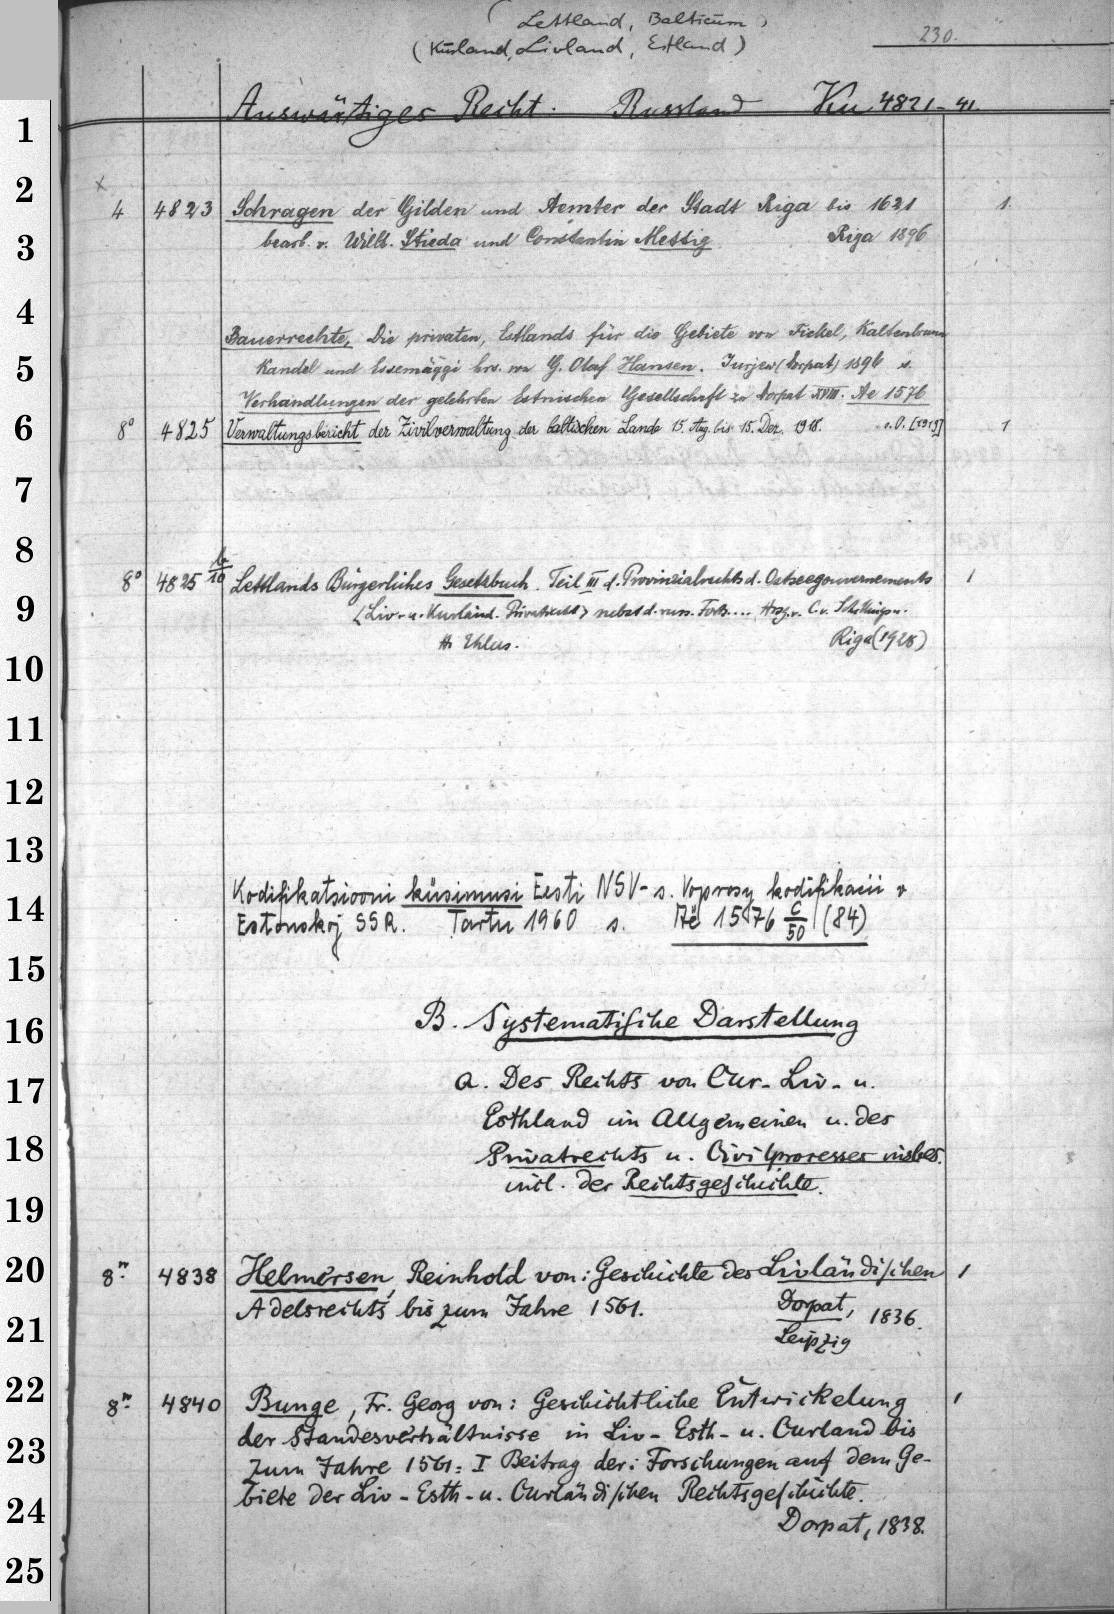 (Lettland, Balticum)
(Kurland, Livland, Estland)
230.
Auswärtiges Recht. Russland Ku 4821-41.
1
2
4 4823 Schragen der Gilden und Aemter der Stadt Riga bis 1621 1.
3
bearb. v. Wilh. Stieda und Constantin Mettig Riga 1896
4
Bauerrechte, Die privaten, Estlands für die Gebiete von Fickel, Kaltenbrunn
5
Kandel und Essemäggi hrs. von G. Olaf Hansen. Jurjew (Dorpat) 1896 s.
Verhandlungen der gelehrten Estnischen Gesellschaft zu Dorpat XVIII. Ae 1576
6
8° 4825 Verwaltungsbericht der Zivilverwaltung der baltischen Lande 15. Aug. bis 15. Dez. 1918. o.O. [1919] 1
7
8
8° 4825 b/10 Lettlands Bürgerliches Gesetzbuch. Teil III d. Provinzialrechts d. Ostseegouvernements 1
9
(Liv- u. Kurländ. Privatrecht) nebst d. russ. Forts.... Hrsg. v. C. v. Schilling u.
H. Ehlers. Riga (1928)
10
11
12
13
Kodifikatsiooni küsimusi Eesti NSV-s. Voprosy kodifikacii v
14
Estonskoj SSR. Tartu 1960 s. Ae 1576 c/50 (84)
15
16
B. Systematische Darstellung
17
a. Des Rechts von Cur- Liv- u.
Esthland im Allgemeinen u. des
18
Privatrechts u. Civilprocesses insbes.
incl. der Rechtsgeschichte.
19
20
8° 4838 Helmersen, Reinhold von: Geschichte des Livländischen 1
Adelsrechts bis zum Jahre 1561. Dorpat, 1836.
21
Leipzig
22
8° 4840 Bunge, Fr. Georg von: Geschichtliche Entwickelung 1
der Standesverhältnisse in Liv- Esth- u. Curland bis
23
zum Jahre 1561. = I Beitrag der: Forschungen auf dem Ge-
biete der Liv- Esth- u. Curländischen Rechtsgeschichte.
24
Dorpat, 1838.
25